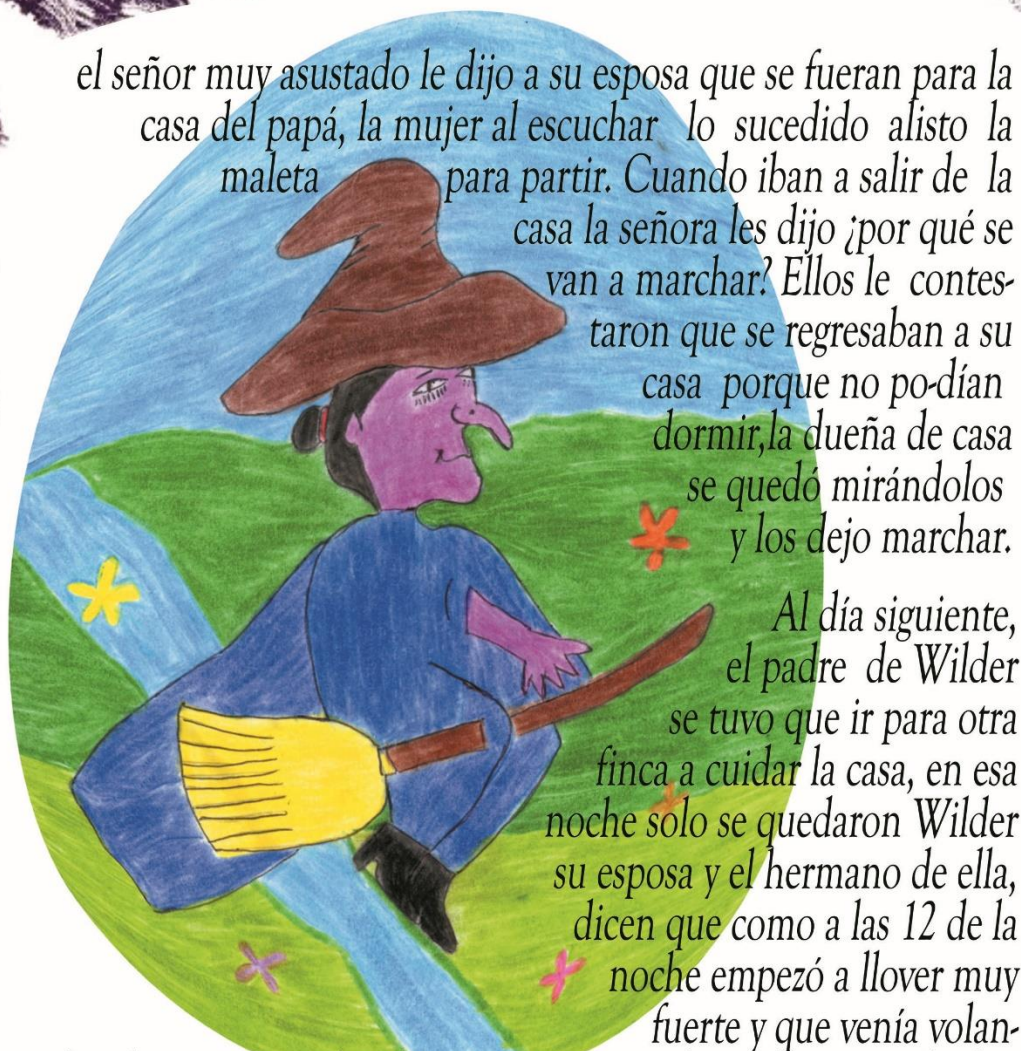 el señor muy asustado le dijo a su esposa que se fueran para la
casa del papá, la mujer al escuchar lo sucedido alisto la
maleta para partir. Cuando iban a salir de la
casa la señora les dijo ¿por qué se
van a marchar? Ellos le contes-
taron que se regresaban a su
casa porque no po-dían
dormir,la dueña de casa
se quedó mirándolos
y los dejo marchar.
Al día siguiente,
el padre de Wilder
se tuvo que ir para otra
finca a cuidar la casa, en esa
noche solo se quedaron Wilder
su esposa y el hermano de ella,
dicen que como a las 12 de la
noche empezó a llover muy
fuerte y que venía volan-